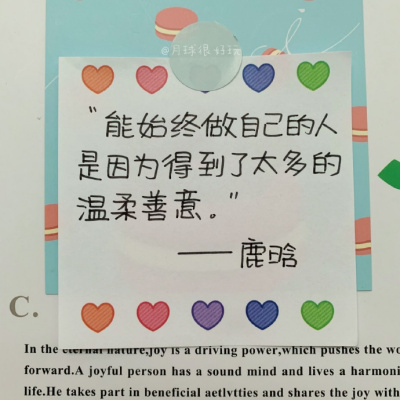 @月球很好玩
“能始终做自己的人
是因为得到了太多的
温柔善意。”
——鹿晗
C.
In the eternal nature,joy is a driving power,which pushes the wo
forward.A joyful person has a sound mind and lives a harmoni
life.He takes part in beneficial aetlvtties and shares the joy with